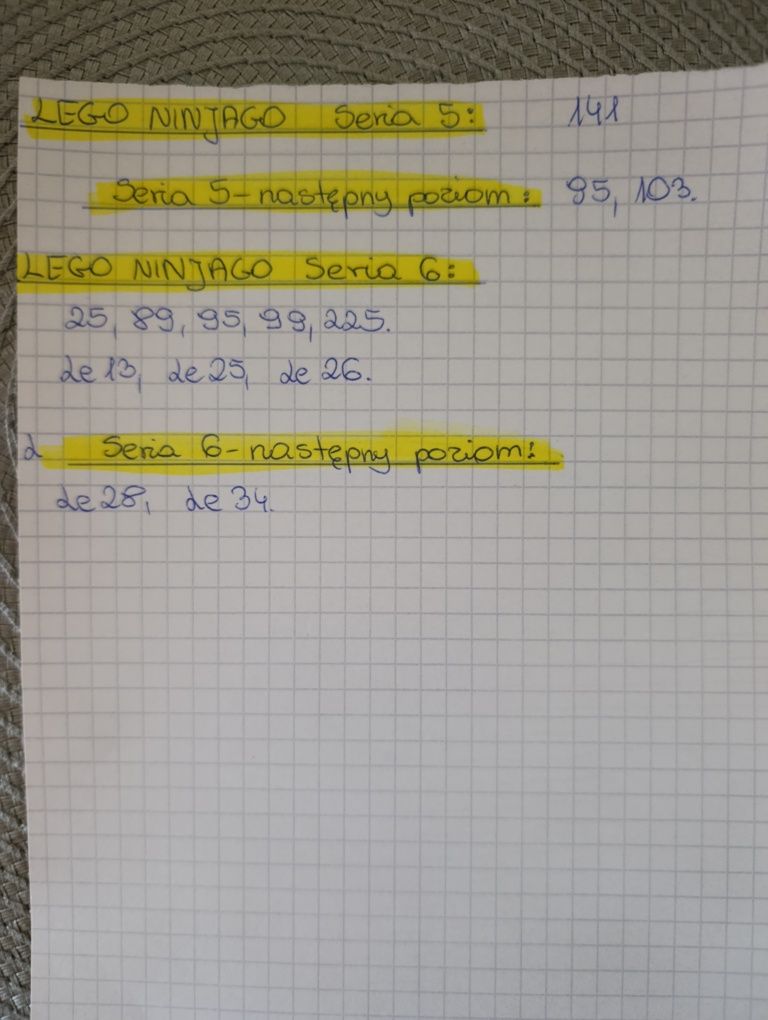 LEGO NINJAGO Seria 5: 141
Seria 5-następny poziom: 95, 103.
LEGO NINJAGO Seria 6:
25, 89, 95, 99, 225.
le 13, le 25, le 26.
Seria 6-następny poziom:
le 28, le 34.